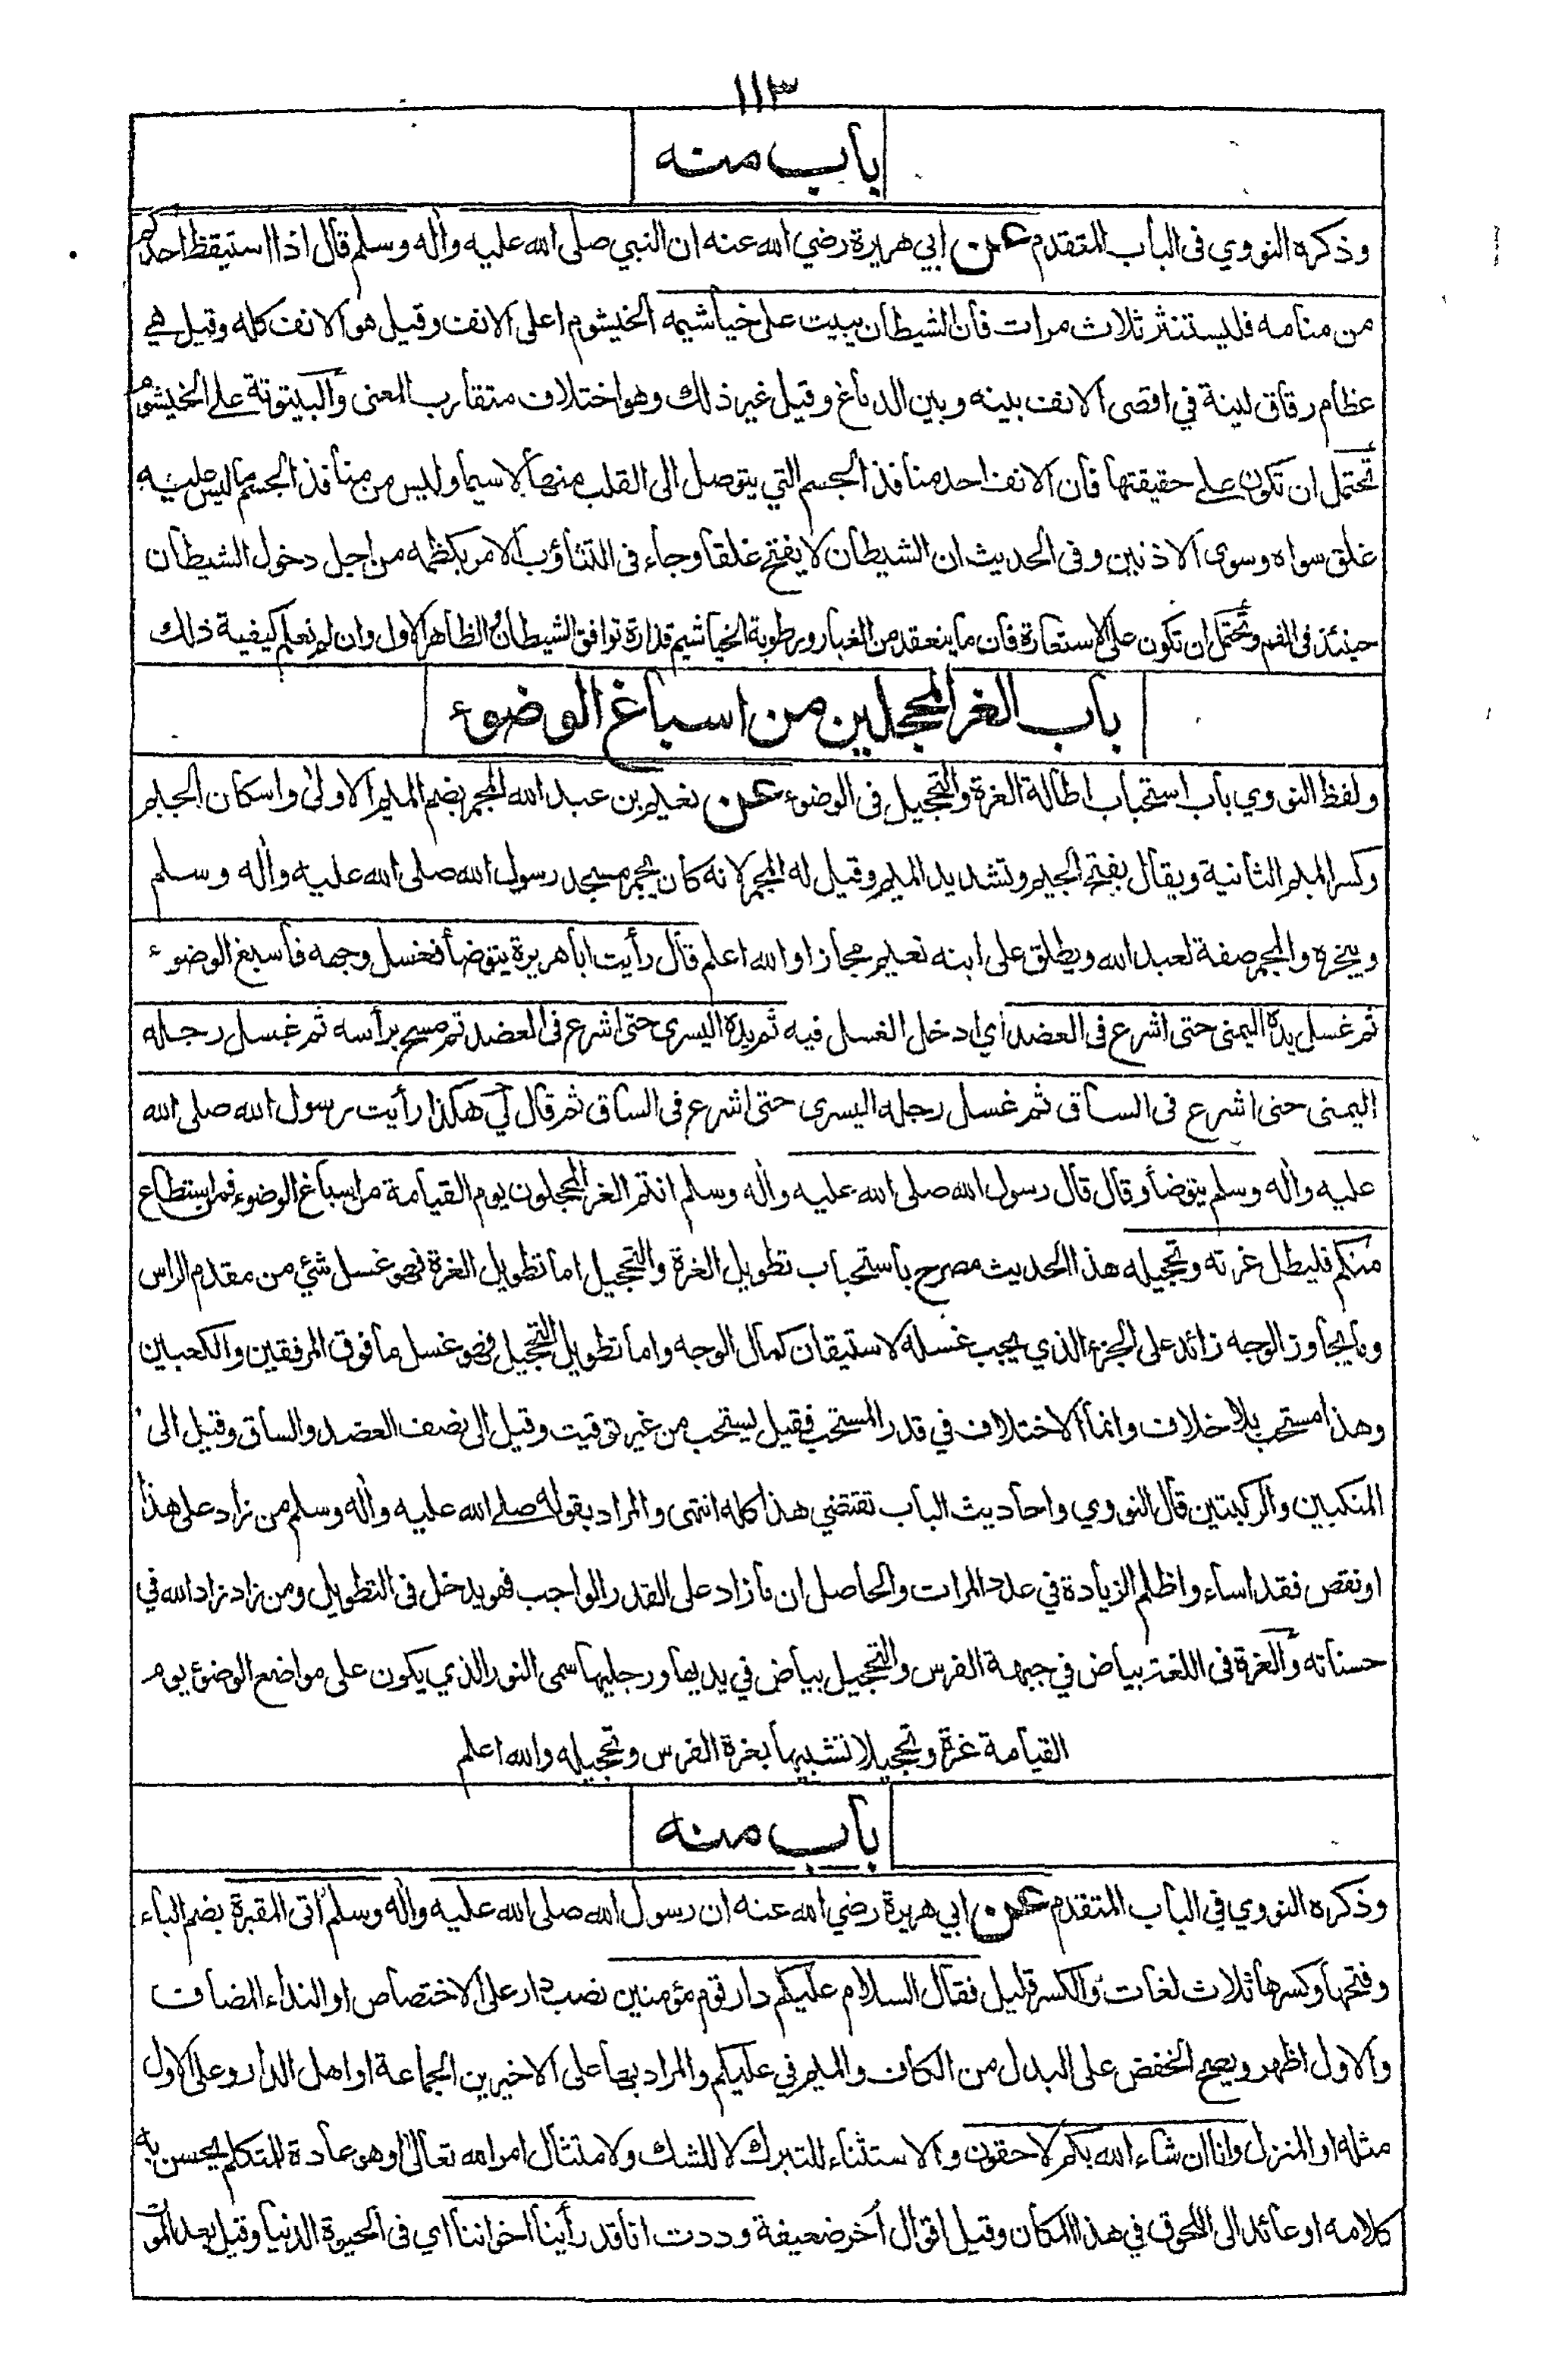 ١١٣
باب منه
وذكره النووي فى الباب المتقدم عن ابي هريرة رضي الله عنه ان النبي صلى الله عليه واٰله وسلم قال اذا استيقظ احدكم
من منامه فليستنثر ثلاث مرات فان الشيطان يبيت على خياشيمه الخيشوم اعلى الانف وقيل هو الانف كله وقيل هي
عظام رقاق لينة في اقصى الانف بينه وبين الدماغ وقيل غير ذلك وهو اختلاف متقارب المعنى والبيتوتة على الخيشوم
تحتمل ان تكون على حقيقتها فان الانف احد منافذ الجسم التي يتوصل الى القلب منها لاسيما وليس من منافذ الجسم ما ليس عليه
غلق سواه وسوى الاذنين وفى الحديث ان الشيطان لا يفتح غلقا وجاء فى التثاؤب الامر بكظمه من اجل دخول الشيطان
حينئذ فى الفم وتحتمل ان تكون على الاستعارة فان ما ينعقد من الغبار ورطوبة الخياشيم قذارة توافق الشيطان والظاهر الاول وان لم نعلم كيفية ذلك
باب الغر المحجلين من اسباغ الوضوء
ولفظ النووي باب استحباب اطالة الغرة والتحجيل فى الوضوء عن نعيم بن عبد الله المجمر بضم الميم الاولى واسكان الجيم
وكسر الميم الثانية ويقال بفتح الجيم وتشديد الميم وقيل له المجمر لانه كان يجمر مسجد رسول الله صلى الله عليه واٰله وسلم
ويبخره والمجمر صفة لعبد الله ويطلق على ابنه نعيم مجازا والله اعلم قال رأيت ابا هريرة يتوضأ فغسل وجهه فأسبغ الوضوء
ثم غسل يده اليمنى حتى اشرع فى العضد اي ادخل الغسل فيه ثم يده اليسرى حتى اشرع فى العضد ثم مسح برأسه ثم غسل رجله
اليمنى حتى اشرع فى الساق ثم غسل رجله اليسرى حتى اشرع فى الساق ثم قال لي هكذا رأيت رسول الله صلى الله
عليه واٰله وسلم يتوضأ وقال قال رسول الله صلى الله عليه واٰله وسلم انتم الغر المحجلون يوم القيامة من اسباغ الوضوء فمن استطاع
منكم فليطل غرته وتحجيله هذا الحديث مصرح باستحباب تطويل الغرة والتحجيل اما تطويل الغرة فهو غسل شئ من مقدم الراس
وما يجاوز الوجه زائد على الجزء الذي يجب غسله لاستيقان كمال الوجه واما تطويل التحجيل فهو غسل ما فوق المرفقين والكعبين
وهذا مستحب بلا خلاف وانما الاختلاف في قدر المستحب فقيل يستحب من غير توقيت وقيل الى نصف العضد والساق وقيل الى
المنكبين والركبتين قال النووي واحاديث الباب تقتضي هذا كله انتهى والمراد بقوله صلى الله عليه واٰله وسلم من زاد على هذا
او نقص فقد اساء واظلم الزيادة في عدد المرات والحاصل ان ما زاد على القدر الواجب فهو يدخل فى التطويل ومن زاد زاد الله في
حسناته والغرة فى اللغة بياض في جبهة الفرس والتحجيل بياض في يديها ورجليها سمى النور الذي يكون على مواضع الوضوء يوم
القيامة غرة وتحجيلا تشبيها بغرة الفرس وتحجيله والله اعلم
باب منه
وذكره النووي في الباب المتقدم عن ابي هريرة رضي الله عنه ان رسول الله صلى الله عليه واٰله وسلم اتى المقبرة بضم الباء
وفتحها وكسرها ثلاث لغات والكسر قليل فقال السلام عليكم دار قوم مؤمنين نصب دار على الاختصاص او النداء المضاف
والاول اظهر ويصح الخفض على البدل من الكاف والميم في عليكم والمراد بها على الاخيرين الجماعة او اهل الدار وعلى الاول
مثله او المنزل وانا ان شاء الله بكم لاحقون والاستثناء للتبرك لا للشك ولامتثال امر الله تعالى او هو عادة للمتكلم يحسن به
كلامه او عائد الى اللحوق في هذا المكان وقيل اقوال اٰخر ضعيفة وددت انا قد رأينا اخواننا اي فى الحيوة الدنيا وقيل بعد الموت